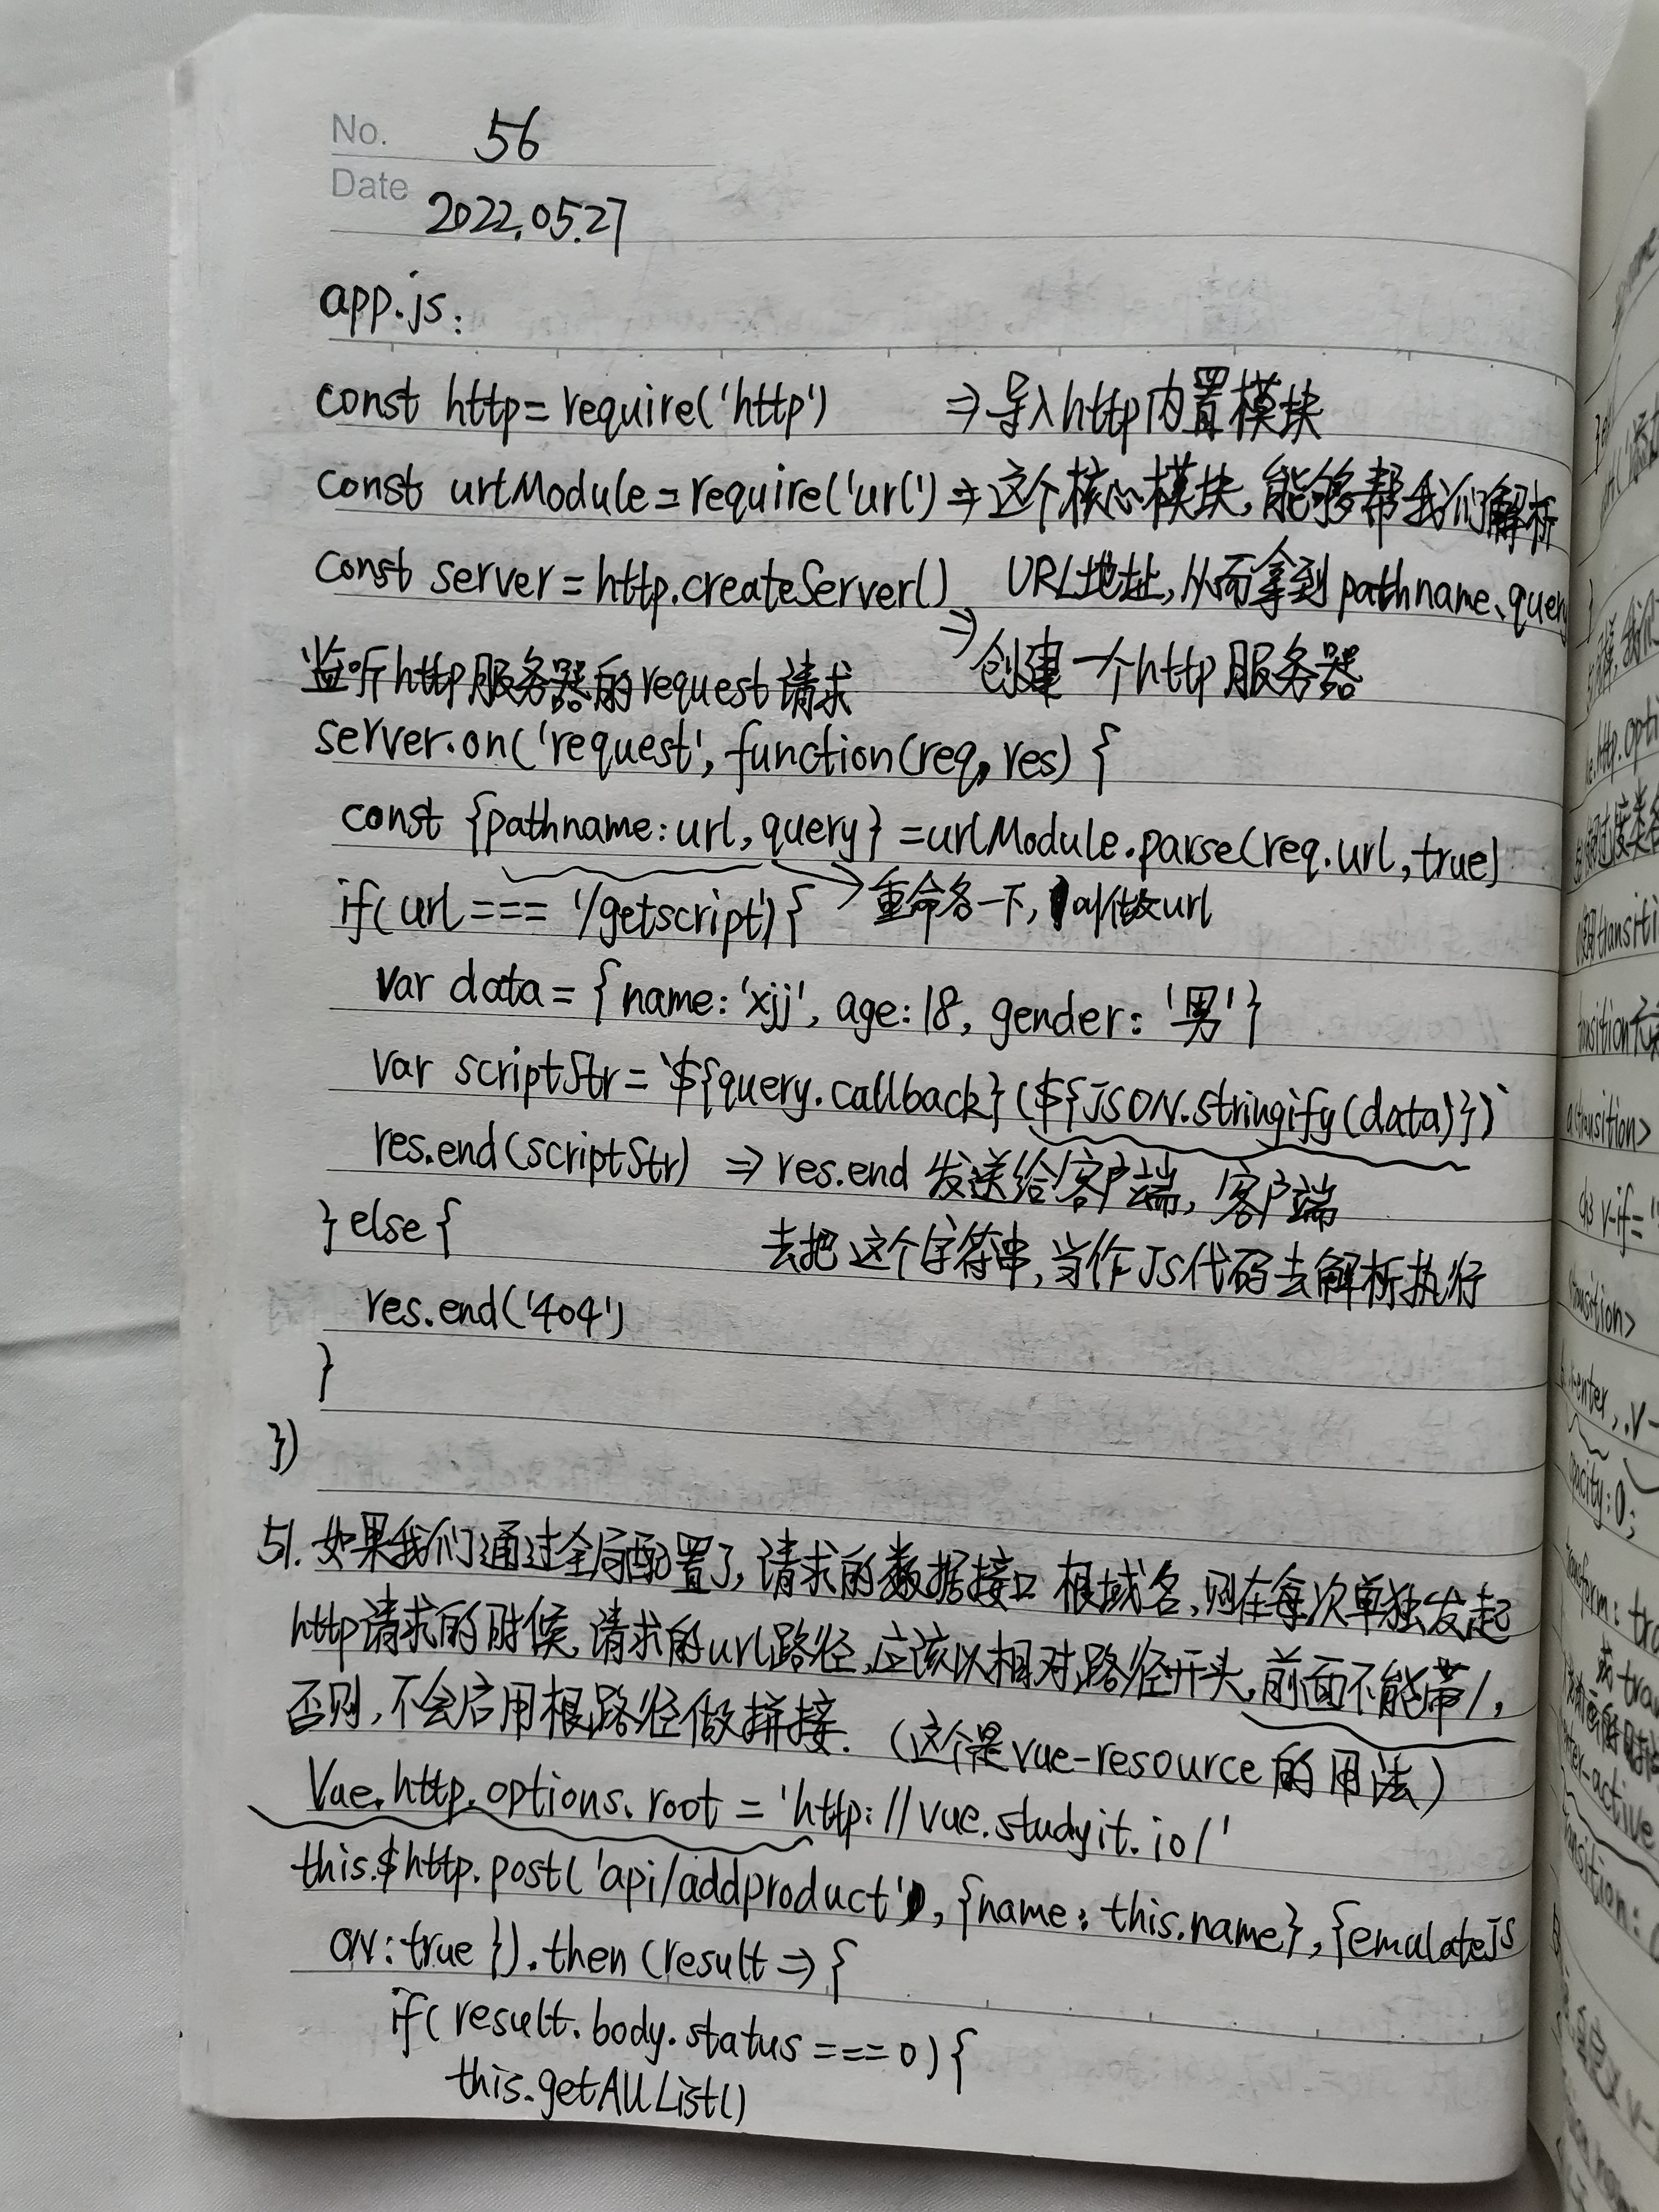 No. 56
Date 2022.05.27
app.js:
const http=require('http') ⇒导入http内置模块
const urlModule=require('url')⇒这个核心模块,能够帮我们解析
const server=http.createServer() URL地址,从而拿到pathname、query
⇒创建一个http服务器
监听http服务器的request请求
server.on('request', function(req, res) {
const {pathname:url, query}=urlModule.parse(req.url,true)
if(url === '/getscript'){ 重命名一下, 叫做url
var data={name:'xjj', age:18, gender:'男'}
var scriptStr=`${query.callback}(${JSON.stringify(data)})`
res.end(scriptStr) ⇒res.end 发送给客户端, 客户端
}else{ 去把这个字符串,当作JS代码去解析执行
res.end('404')
}
})
51. 如果我们通过全局配置了,请求的数据接口 根域名,则在每次单独发起
http请求的时候,请求的url路径,应该以相对路径开头,前面不能带/,
否则,不会启用根路径做拼接. (这个是vue-resource的用法)
Vue.http.options.root = 'http://vue.studyit.io/'
this.$http.post('api/addproduct', {name: this.name}, {emulateJS
ON:true}).then(result⇒{
if(result.body.status===0){
this.getAllList()